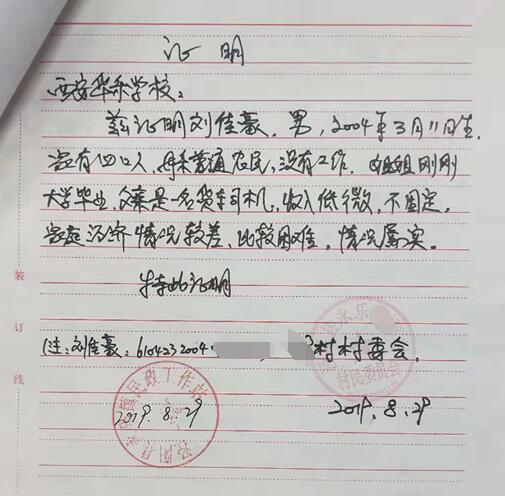 证明
西安华乐学校:
兹证明刘佳豪,男,2004年3月11日生.
家有四口人,母亲普通农民,没有工作.姐姐刚刚
大学毕业,父亲是一名货车司机,收入低微,不固定,
家庭经济情况较差,比较困难,情况属实。
特此证明
(注:刘佳豪:6104232004
村村委会.
2019.8.29
2019.8.29
县永乐
村民委员会
镇民政工作站
泾阳县永
装
订
线